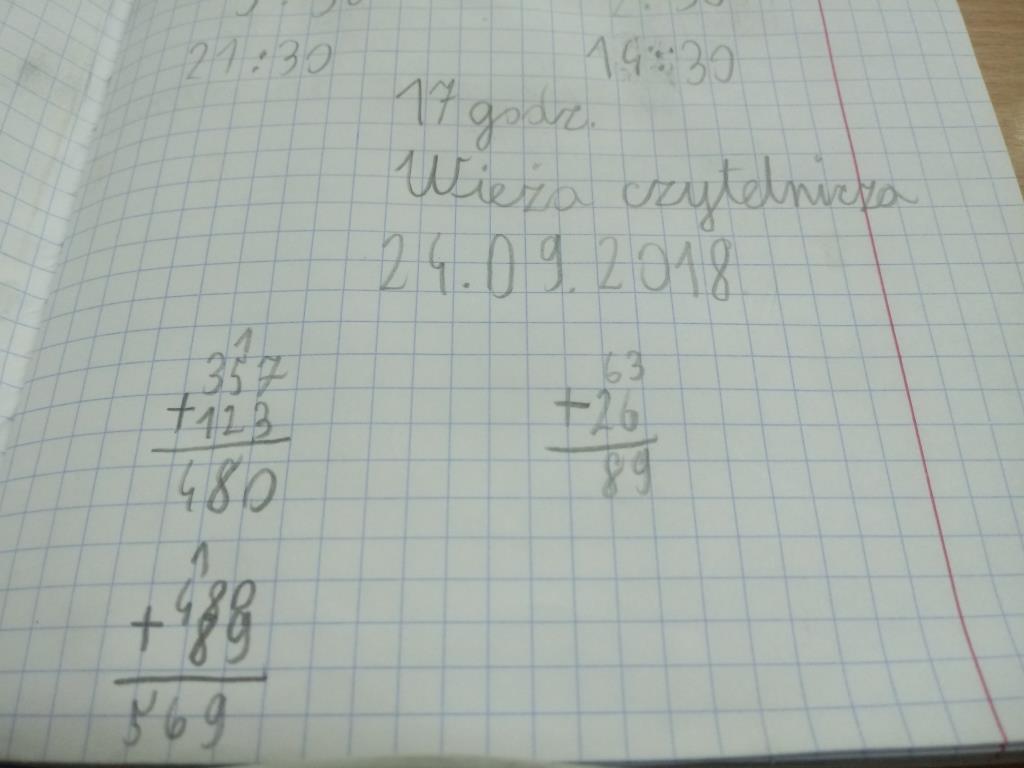 21:30 14:30
17 godz.
Wieża czytelnicza
24.09.2018
1
357
+123
480
63
+26
89
1
480
+89
569